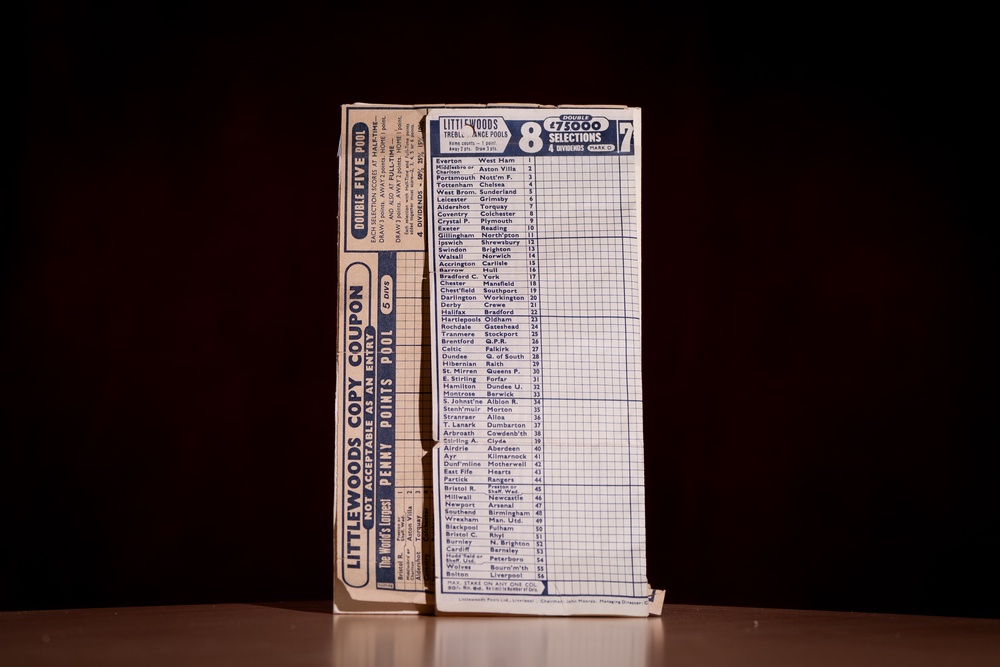 DOUBLE FIVE POOL
EACH SELECTION SCORES AT HALF-TIME—
DRAW 3 points. AWAY 2 points. HOME 1 point.
AND ALSO AT FULL-TIME—
DRAW 3 points. AWAY 2 points. HOME 1 point.
4 DIVIDENDS
LITTLEWOODS COPY COUPON
NOT ACCEPTABLE AS AN ENTRY
The World's Largest PENNY POINTS POOL 5 DIVS
Bristol R. Preston or Sheff. Wed. 1
Middlesbro or Charlton Aston Villa 2
Aldershot Torquay 3
LITTLEWOODS
TREBLE CHANCE POOLS
Home counts — 1 point.
Away 2 pts. Draw 3 pts.
8 DOUBLE £75000 SELECTIONS
4 DIVIDENDS MARK O
7
Everton West Ham 1
Middlesbro or Charlton Aston Villa 2
Portsmouth Nott'm F. 3
Tottenham Chelsea 4
West Brom. Sunderland 5
Leicester Grimsby 6
Aldershot Torquay 7
Coventry Colchester 8
Crystal P. Plymouth 9
Exeter Reading 10
Gillingham North'pton 11
Ipswich Shrewsbury 12
Swindon Brighton 13
Walsall Norwich 14
Accrington Carlisle 15
Barrow Hull 16
Bradford C. York 17
Chester Mansfield 18
Chest'field Southport 19
Darlington Workington 20
Derby Crewe 21
Halifax Bradford 22
Hartlepools Oldham 23
Rochdale Gateshead 24
Tranmere Stockport 25
Brentford Q.P.R. 26
Celtic Falkirk 27
Dundee Q. of South 28
Hibernian Raith 29
St. Mirren Queens P. 30
E. Stirling Forfar 31
Hamilton Dundee U. 32
Montrose Berwick 33
S. Johnst'ne Albion R. 34
Stenh'muir Morton 35
Stranraer Alloa 36
T. Lanark Dumbarton 37
Arbroath Cowdenb'th 38
Stirling A. Clyde 39
Airdrie Aberdeen 40
Ayr Kilmarnock 41
Dunf'mline Motherwell 42
East Fife Hearts 43
Partick Rangers 44
Bristol R. Preston or Sheff. Wed. 45
Millwall Newcastle 46
Newport Arsenal 47
Southend Birmingham 48
Wrexham Man. Utd. 49
Blackpool Fulham 50
Bristol C. Rhyl 51
Burnley N. Brighton 52
Cardiff Barnsley 53
Hudd'field or Sheff. Utd. Peterboro 54
Wolves Bourn'm'th 55
Bolton Liverpool 56
MAX. STAKE ON ANY ONE COL.
No limit to Number of Cols.
Littlewoods Pools Ltd., Liverpool Chairman: John Moores. Managing Director: